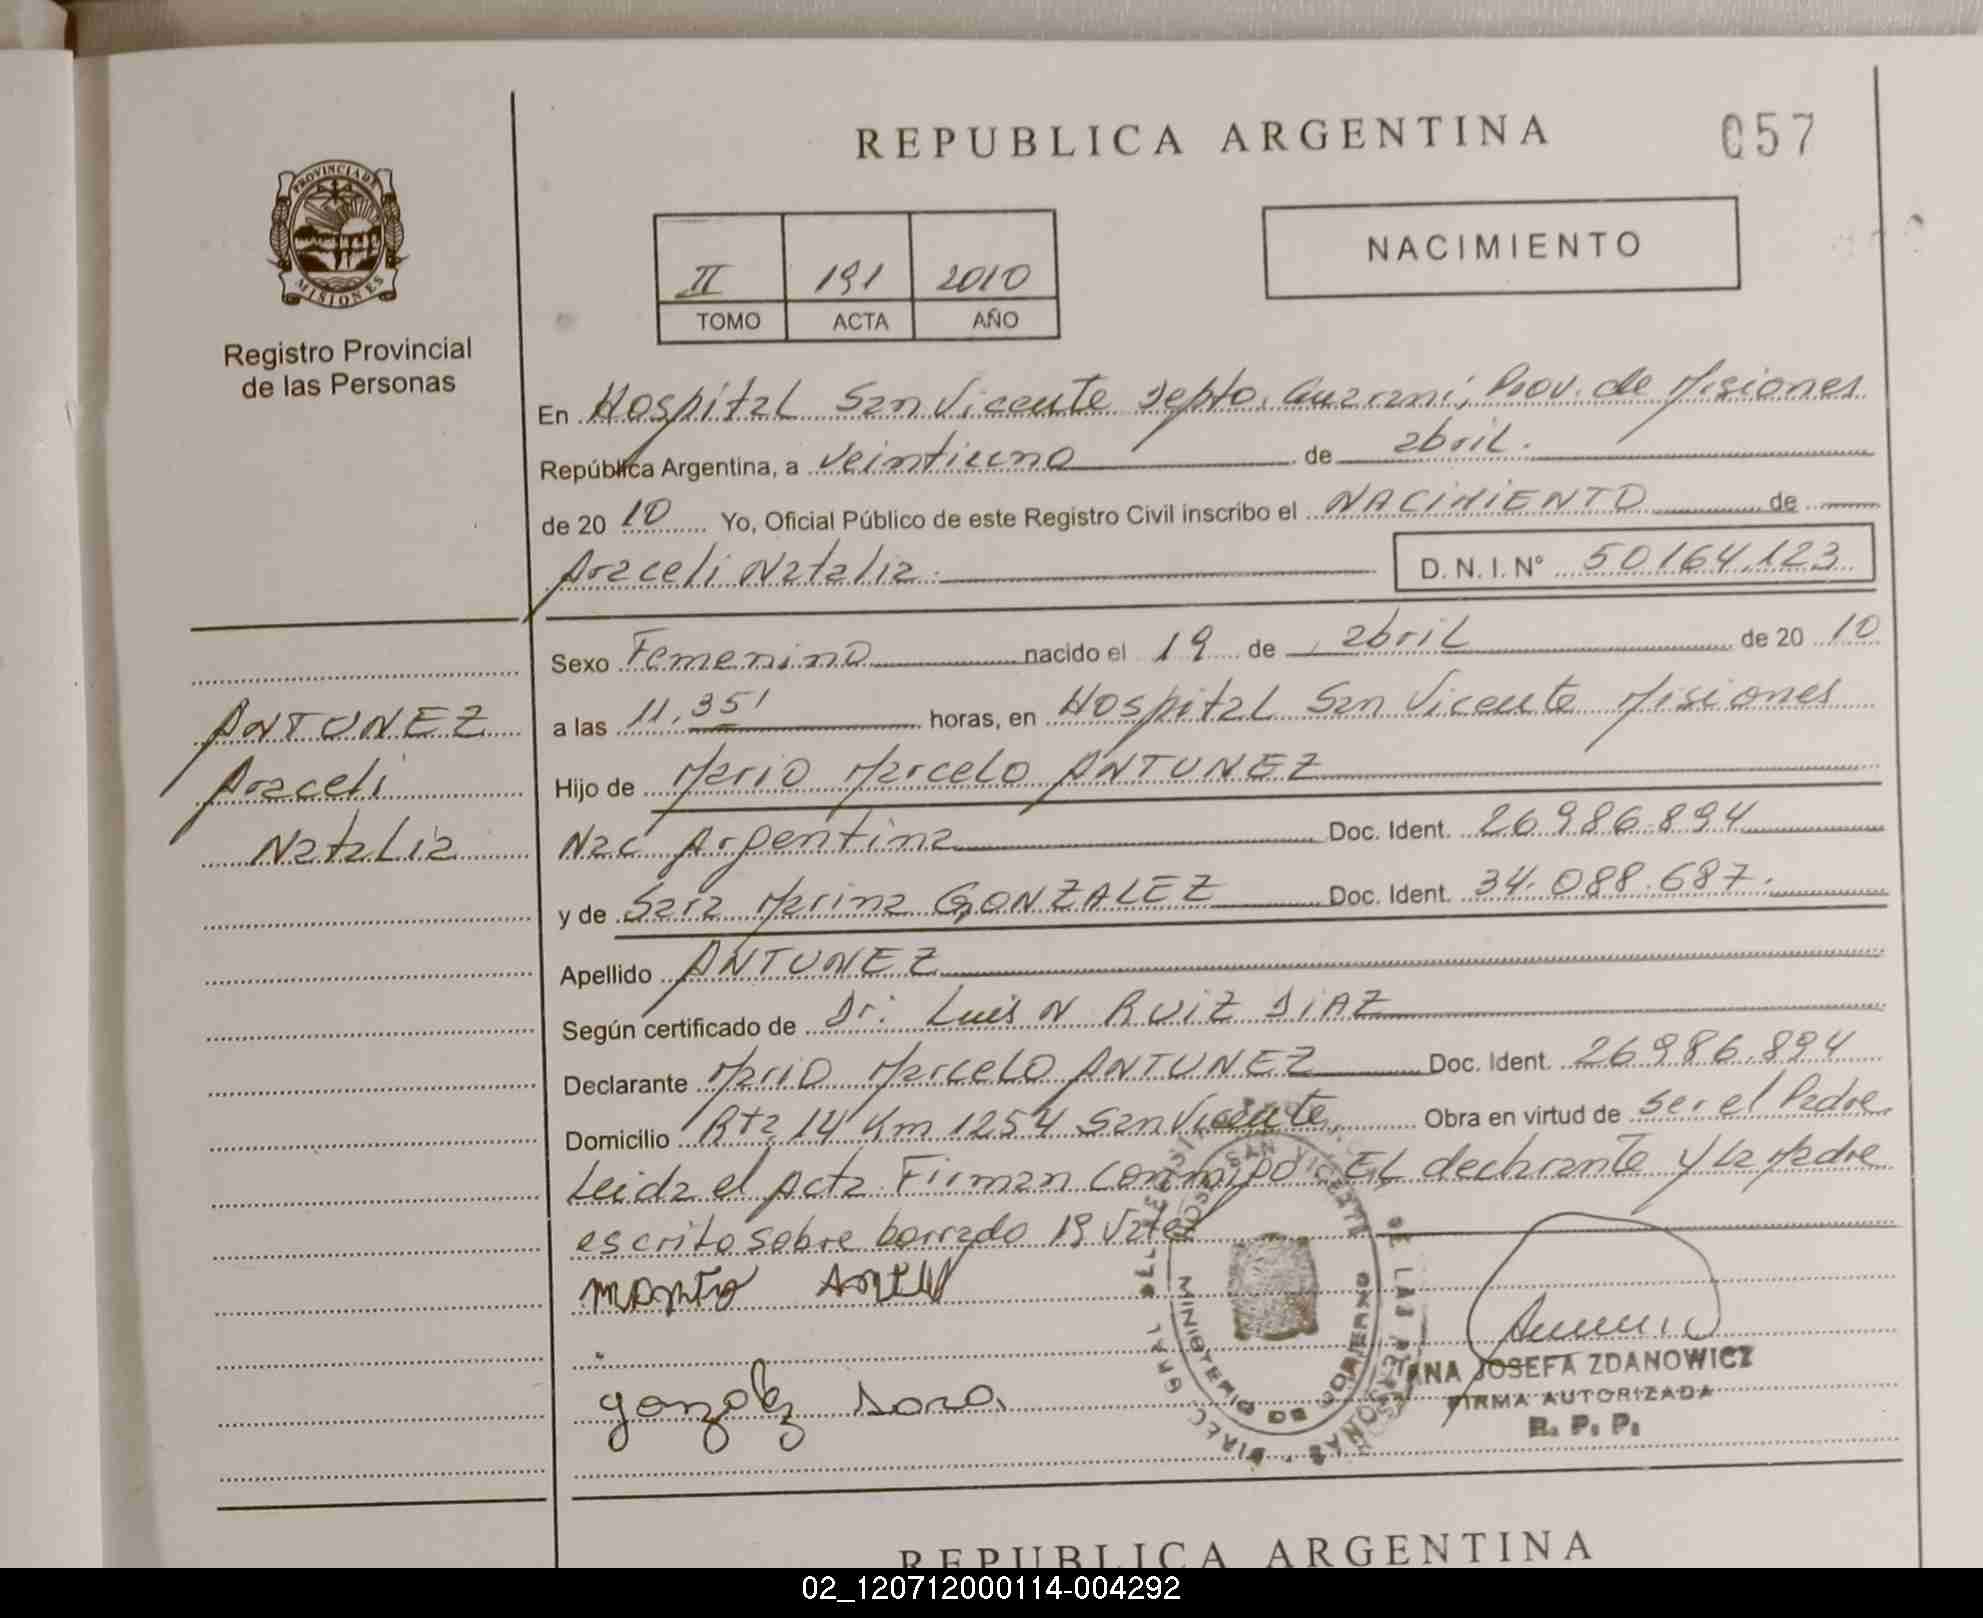 REPUBLICA ARGENTINA
057
PROVINCIA DE
MISIONES
Registro Provincial
de las Personas
II 191 2010
TOMO ACTA AÑO
NACIMIENTO
En Hospital San Vicente Depto. Guarani, Prov. de Misiones
República Argentina, a veintiuno de abril.
de 20 10 Yo, Oficial Público de este Registro Civil inscribo el NACIMIENTO de
Araceli Natalia. D. N. I. N° 50164.123
Sexo Femenino nacido el 19 de abril de 20 10
a las 11,35' horas, en Hospital San Vicente Misiones
Hijo de Mario Marcelo ANTUNEZ
Nac Argentina Doc. Ident. 26986.894
y de Sara Marina GONZALEZ Doc. Ident. 34.088.687.
Apellido ANTUNEZ
Según certificado de Dr. Luis N RUIZ DIAZ
Declarante Mario Marcelo ANTUNEZ Doc. Ident. 26986.894
Domicilio Rta 14 Km 1254 San Vicente, Obra en virtud de ser el Padre.
Leida el Acta Firman conmigo EL declarante y la Madre
escrito sobre borrado 19 Vale
ANTUNEZ
Araceli
Natalia
gonzalez sara
HOSPITAL SAN VICENTE
MINISTERIO DE GOBIERNO
ANA JOSEFA ZDANOWICZ
FIRMA AUTORIZADA
R. P. P.
REPUBLICA ARGENTINA
02_120712000114-004292